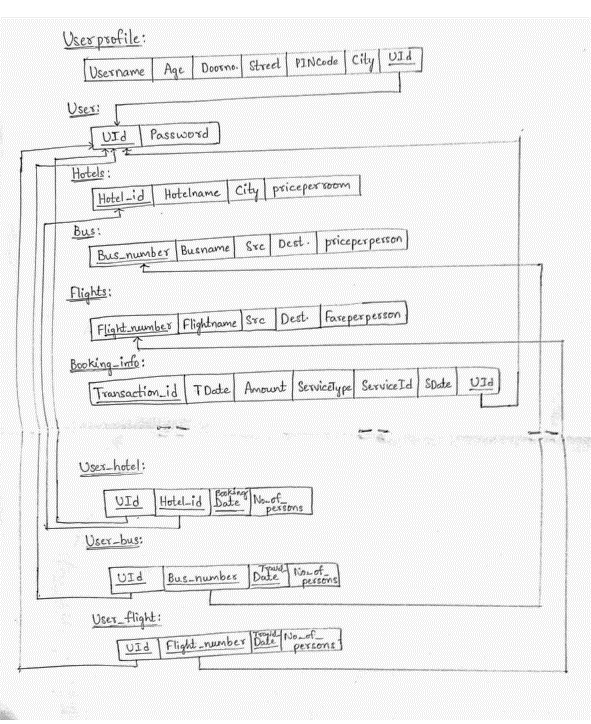 Userprofile:
Username Age Doorno. Street PINCode City UId
User:
UId Password
Hotels:
Hotel_id Hotelname City priceperroom
Bus:
Bus_number Busname Src Dest. priceperperson
Flights:
Flight_number Flightname Src Dest. Fareperperson
Booking_info:
Transaction_id TDate Amount ServiceType ServiceId SDate UId
User_hotel:
UId Hotel_id Booking Date No_of_
persons
User_bus:
UId Bus_number Travel_ Date No_of_
persons
User_flight:
UId Flight_number Travel_ Date No_of_
persons